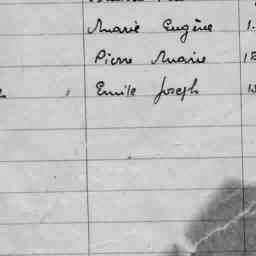 Marie Eugène 1
Pierre Marie 1
Emile Joseph 1